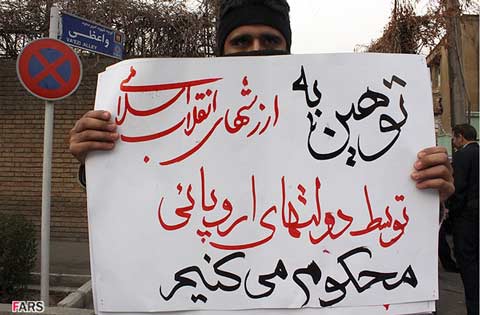 واعظی
VAEZI ALLEY
توهین به ارزشهای انقلاب اسلامی
توسط دولتهای اروپائی
محکوم می کنیم
FARS